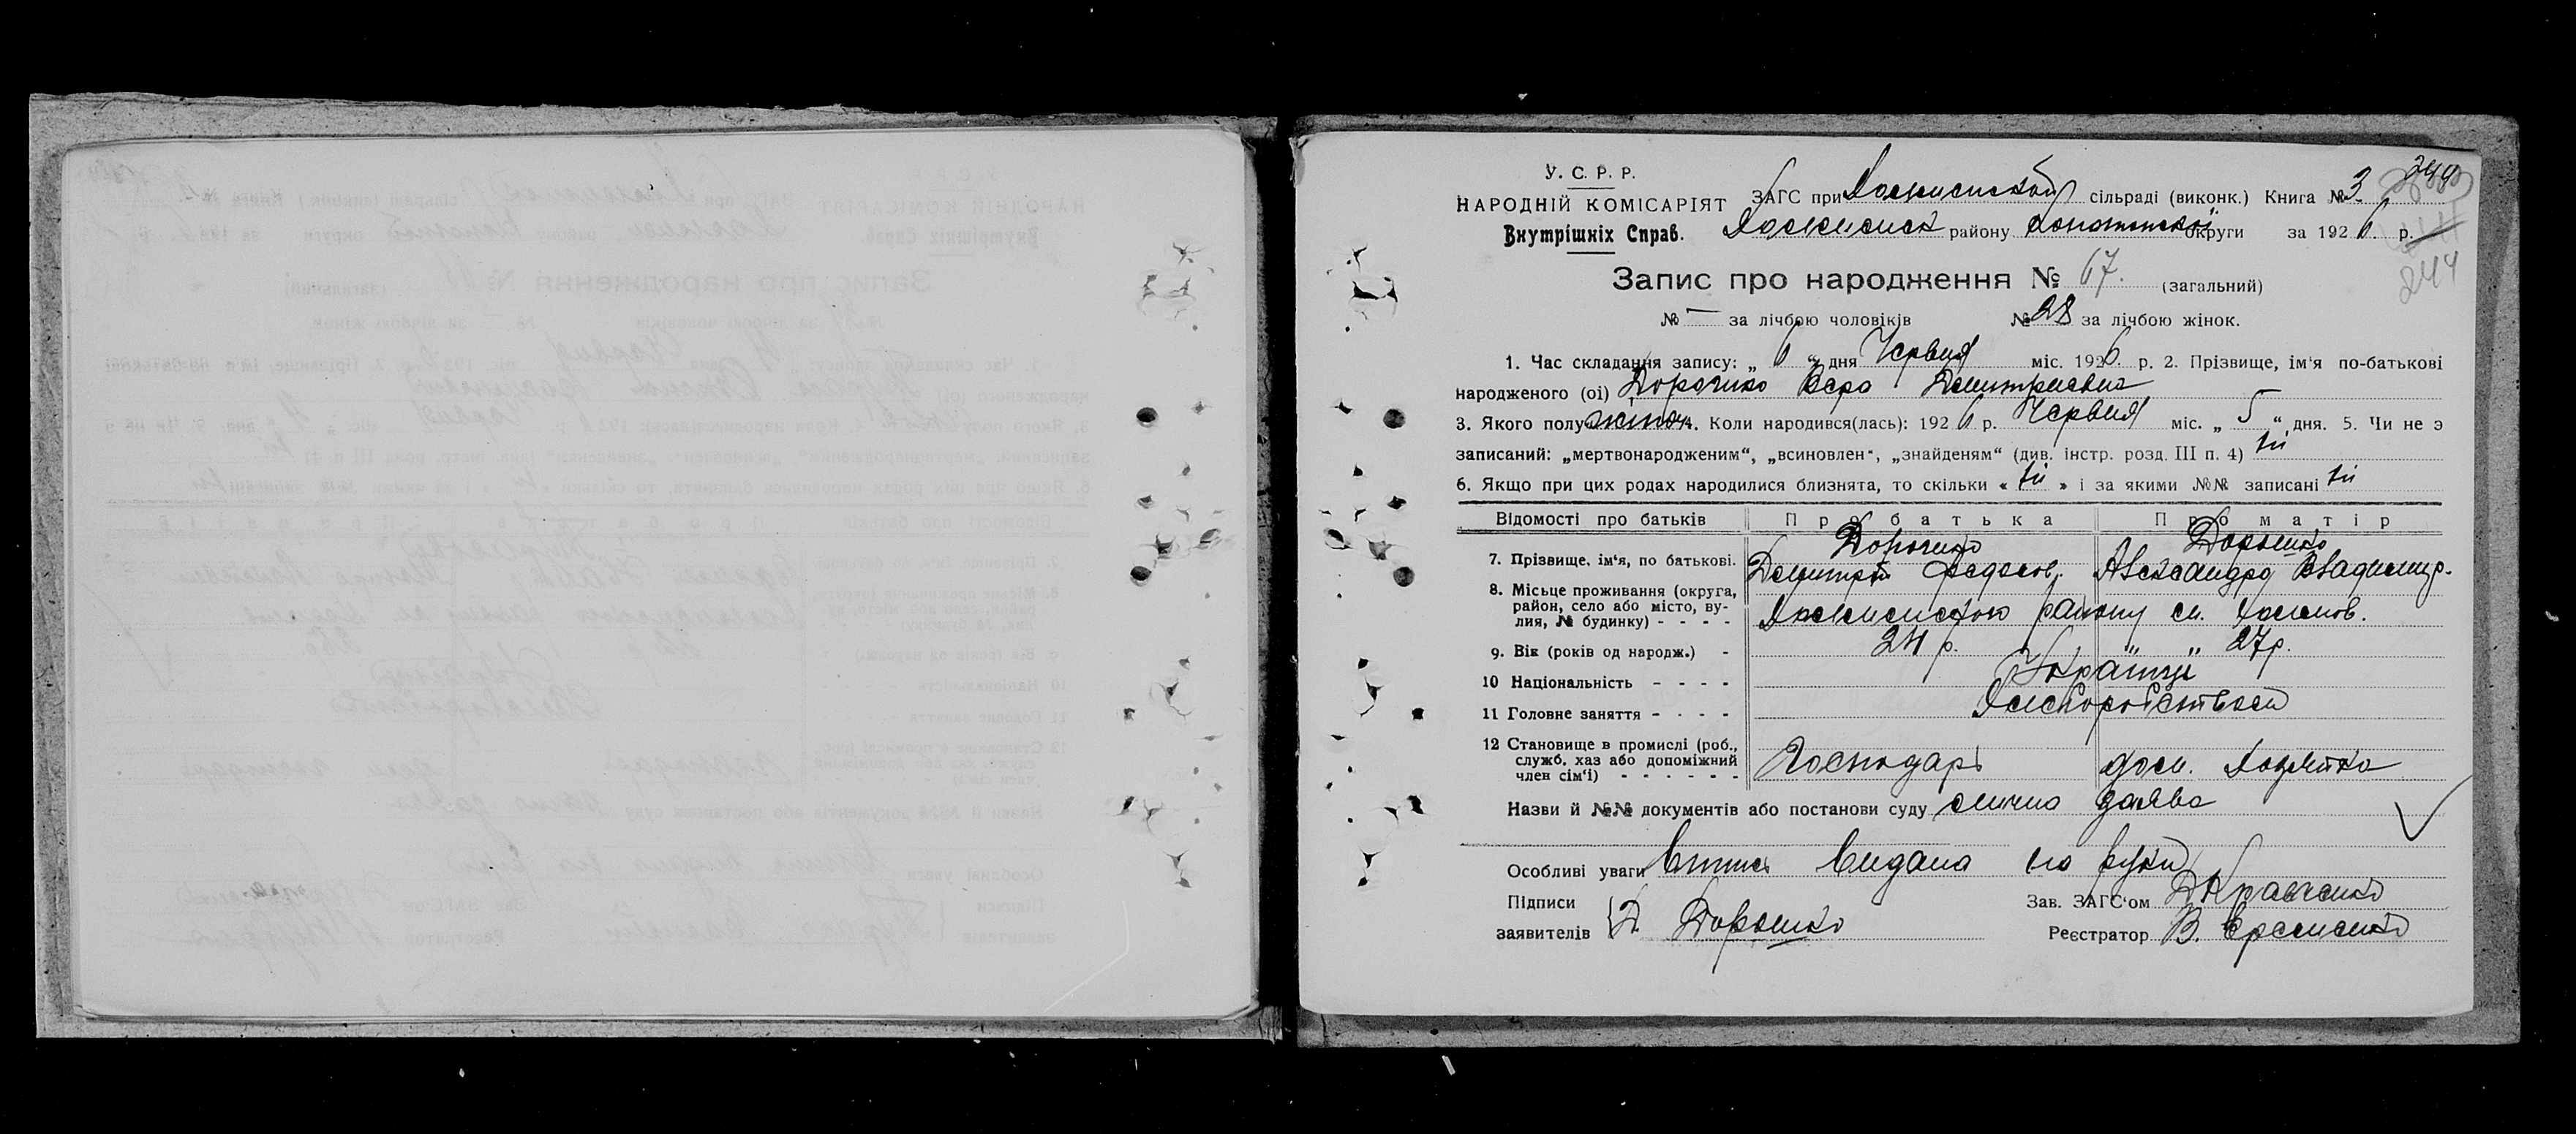 У. С. Р. Р.
НАРОДНІЙ КОМІСАРІЯТ
Внутрішніх Справ.
ЗАГС при сільраді (виконк.) Книга № 3
району округи за 1926 р.
244
Запис про народження № 67. (загальний)
№ — за лічбою чоловіків № 28 за лічбою жінок.
1. Час складання запису: „ 6 “ дня Червня міс. 1926. р. 2. Прізвище, ім'я по-батькові
народженого (ої) Дорошко Вера Дмитриевна
3. Якого полу жіноч. 4. Коли народився(лась): 1926 р. Червня міс. „ 5 “ дня. 5. Чи не э
записаний: „мертвонародженим“, „всиновлен“, „знайденям“ (див. інстр. розд. III п. 4) ні
6. Якщо при цих родах народилися близнята, то скільки « ні » і за якими №№ записані ні
Відомості про батьків Про батька Про матір
7. Прізвище, ім'я, по батькові. Дорошко Дорошко
Дмитрий Федосов. Александра Владимир.
8. Місьце проживання (округа, район, село або місто, вулия, № будинку) - - - - району
9. Вік (років од народж.) - 24 р. 27 р.
10 Національність - - - - Українці
11 Головне заняття - - - - Хліборобством
12 Становище в промислі (роб., служб, хаз або допоміжний член сім'ї) - - - - - - Господарь дом. хозяйка
Назви й №№ документів або постанови суду заява
Особливі уваги Випис видана на руки
Підписи
заявителів Д Дорошко
Зав. ЗАГС'ом Д Кравченко
Реєстратор В. Єременко